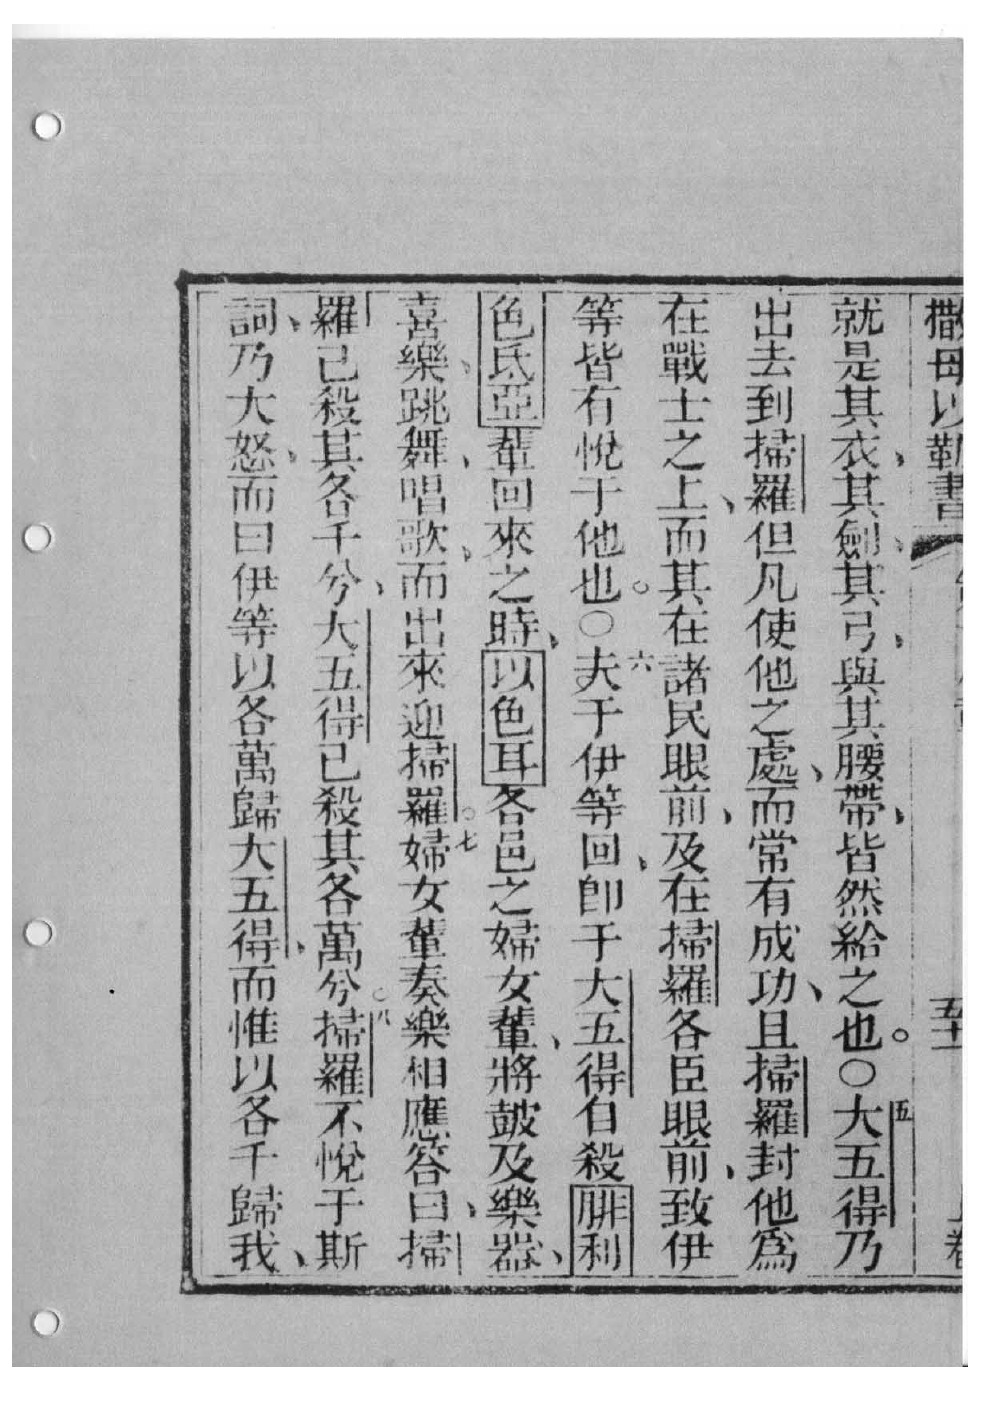 撒母以勒書 五十 上卷
就是其衣、其劍、其弓、與其腰帶、皆然給之也。○五大五得乃
出去到掃羅但凡使他之處、而常有成功、且掃羅封他爲
在戰士之上、而其在諸民眼前、及在掃羅各臣眼前、致伊
等皆有悅于他也。○六夫于伊等回、卽于大五得自殺腓利
色氐亞輩回來之時、以色耳各邑之婦女輩、將鼓及樂器、
喜樂、跳舞、唱歌、而出來迎掃羅。七婦女輩奏樂相應答曰、掃
羅已殺其各千兮、大五得已殺其各萬兮。八掃羅不悅于斯
詞、乃大怒、而曰伊等以各萬歸大五得、而惟以各千歸我、